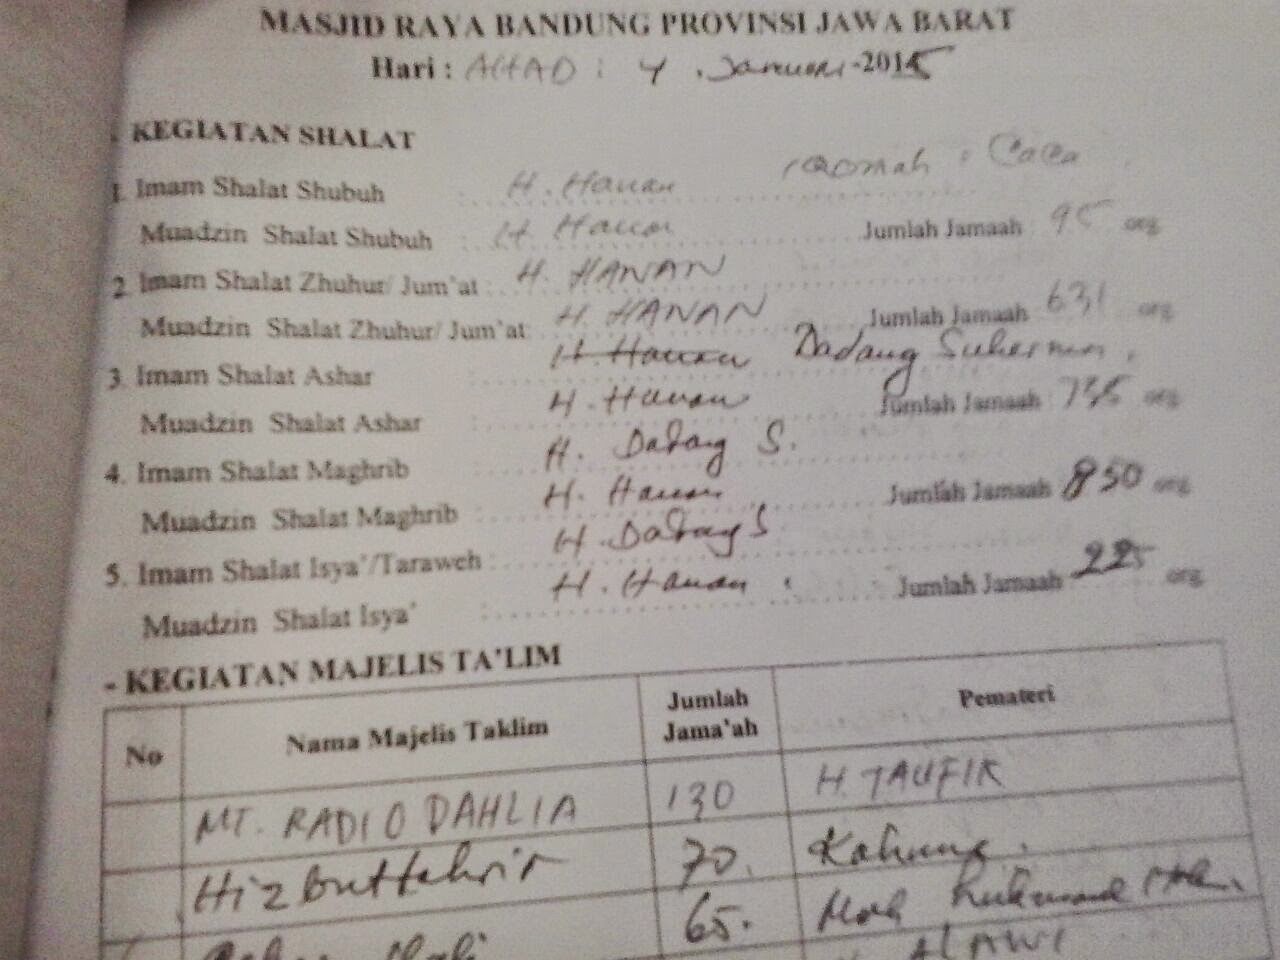 MASJID RAYA BANDUNG PROVINSI JAWA BARAT
Hari : AHAD : 4 . Januari -2015
. KEGIATAN SHALAT
1. Imam Shalat Shubuh : H. Hanan iqomah : Caca
Muadzin Shalat Shubuh : H. Hanan Jumlah Jamaah 95 org
2. Imam Shalat Zhuhur/ Jum'at : H. HANAN
Muadzin Shalat Zhuhur/ Jum'at: H. HANAN Jumlah Jamaah 631 org
3. Imam Shalat Ashar : H. Hanan Dadang Suherman.
Muadzin Shalat Ashar : H. Hanan Jumlah Jamaah 735 org
4. Imam Shalat Maghrib : H. Dadang S.
Muadzin Shalat Maghrib : H. Hanan Jumlah Jamaah 850 org
5. Imam Shalat Isya'/Taraweh : H. Dadang S
Muadzin Shalat Isya' : H. Hanan . Jumlah Jamaah 225 org
- KEGIATAN MAJELIS TA'LIM
No Nama Majelis Taklim Jumlah Jama'ah Pemateri
MT. RADIO DAHLIA 130 H. TAUFIK
Hizbuttahrir 70.
65. Moh
ALAWI